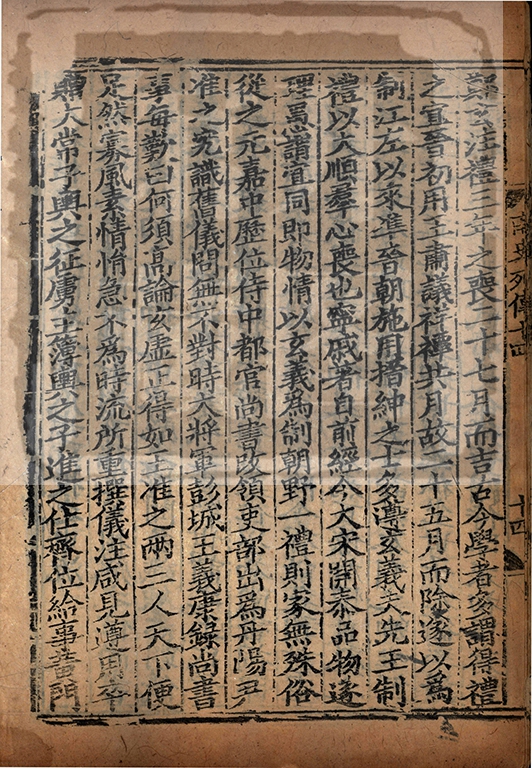 南史列傳十四
十四
鄭玄注禮三年之喪二十七月而吉古今學者多謂得禮
之宜晉初用王肅議祥禫共月故二十五月而除遂以爲
制江左以來準晉朝施用搢紳之士多遵玄義夫先王制
禮以大順羣心喪也寧戚著自前經今大宋開泰品物遂
理愚謂宜同即物情以玄義爲制朝野一禮則家無殊俗
從之元嘉中歷位侍中都官尚書改領吏部出爲丹陽尹
准之究識舊儀問無不對時大將軍彭城王義康錄尚書
事每歎曰何須高論玄虛正得如王准之兩三人天下便
足然寡風素情悁急不爲時流所重撰儀注咸見遵用卒
贈太常子興之征虜主簿興之子進之仕齊位給事黃門